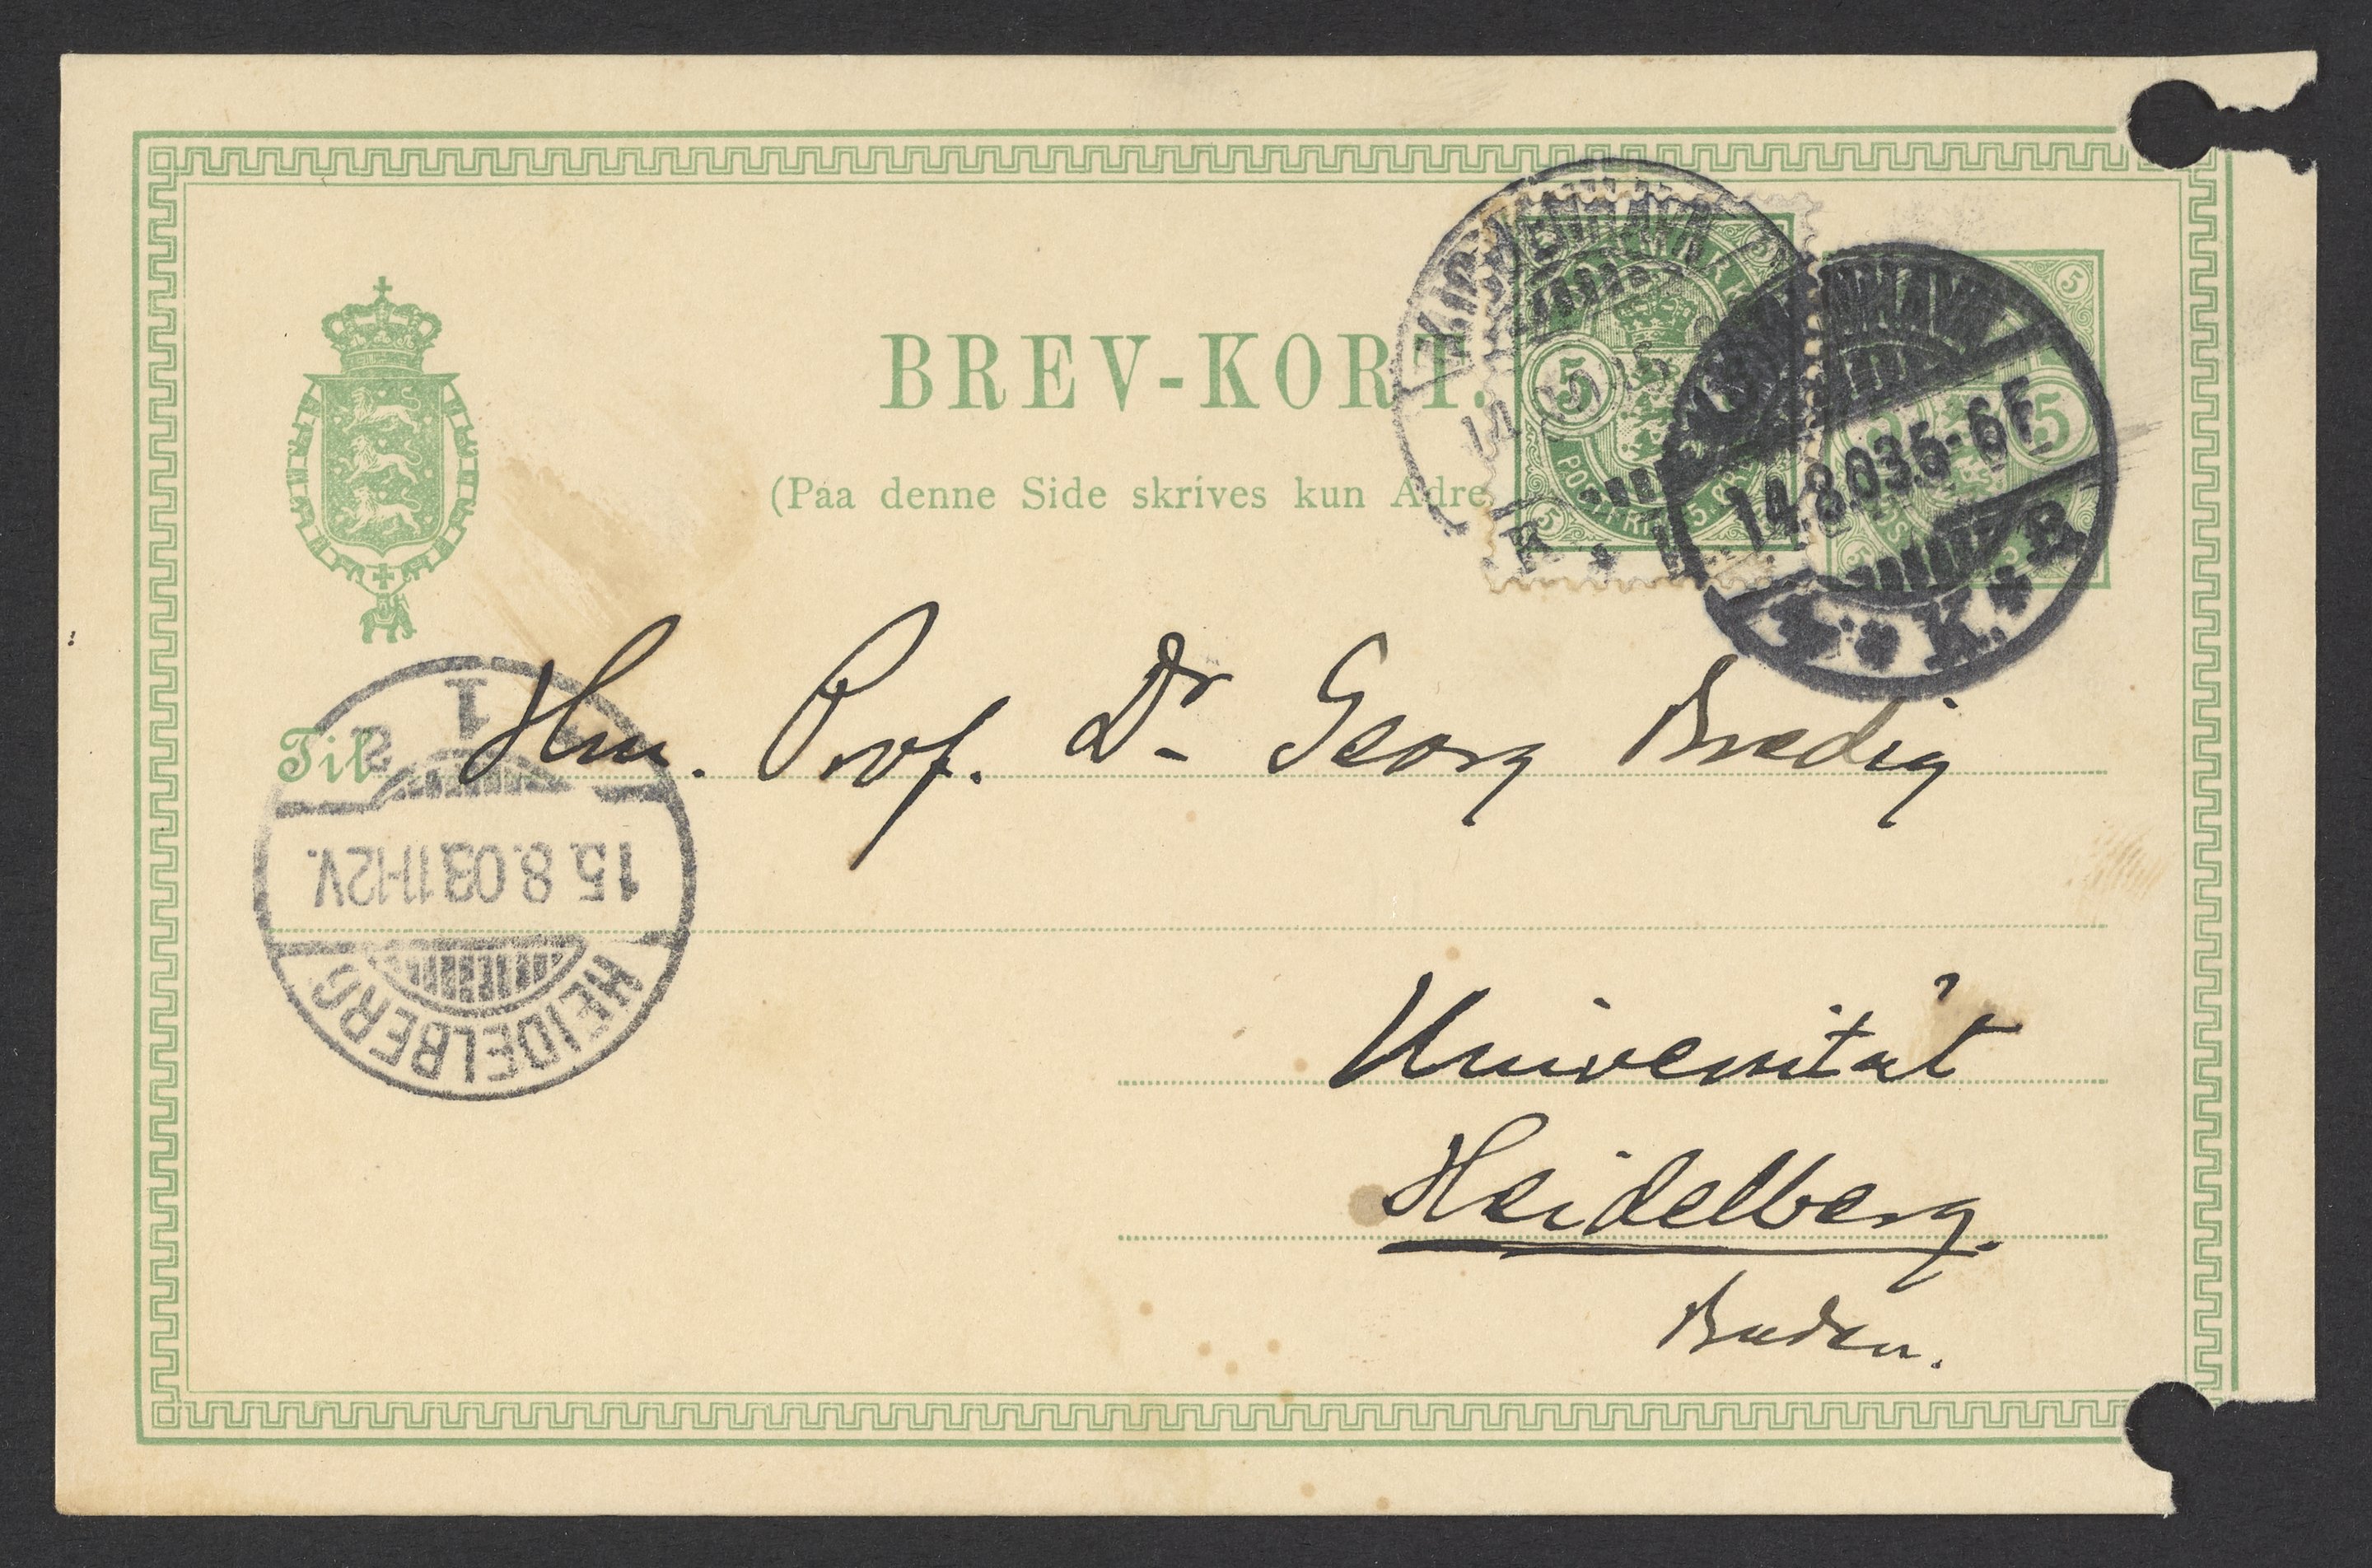 BREV-KORT.
(Paa denne Side skrives kun Adre
KJØBENHAVN
K
DANMARK
5
POSTFRIM 5
KJØBENHAVN
14.8.03.5-6 F.
K. B.
5
Til Hrn. Prof. Dr Georg Bredig
1
15.8.03.11-12V.
HEIDELBERG
Universität
Heidelberg.
Baden.